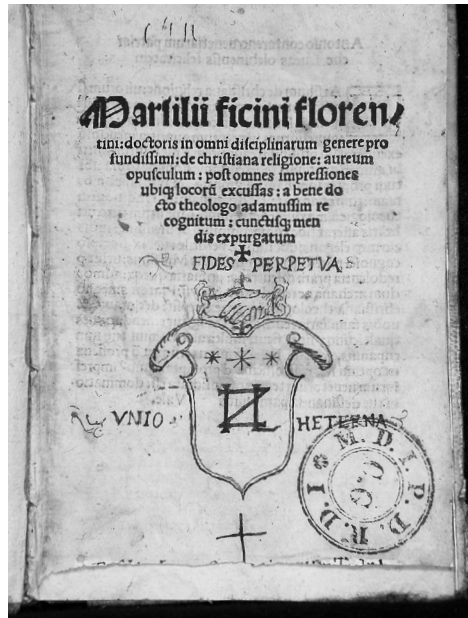 Marsilii ficini floren⸗
tini: doctoris in omni disciplinarum genere pro
fundissimi: de christiana religione: aureum
opusculum: post omnes impressiones
ubiqꝫ locorū excussas: a bene do
cto theologo adamussim re
cognitum: cunctisqꝫ men
dis expurgatum
FIDES PERPETVA
VNIO HETERNA
M. D. I. P. D. R. D. I
C. G